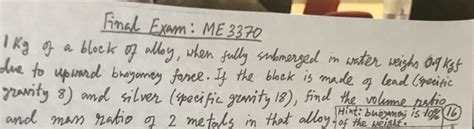 Final Exam: ME 3370
1 Kg of a block of alloy, when fully submerged in water weighs 0.9 Kgf
due to upward buoyancy force. If the block is made of lead (specific
gravity 8) and silver (specific gravity 18), find the volume ratio
and mass ratio of 2 metals in that alloy. Hint: buoyancy is 10% of the weight. 16